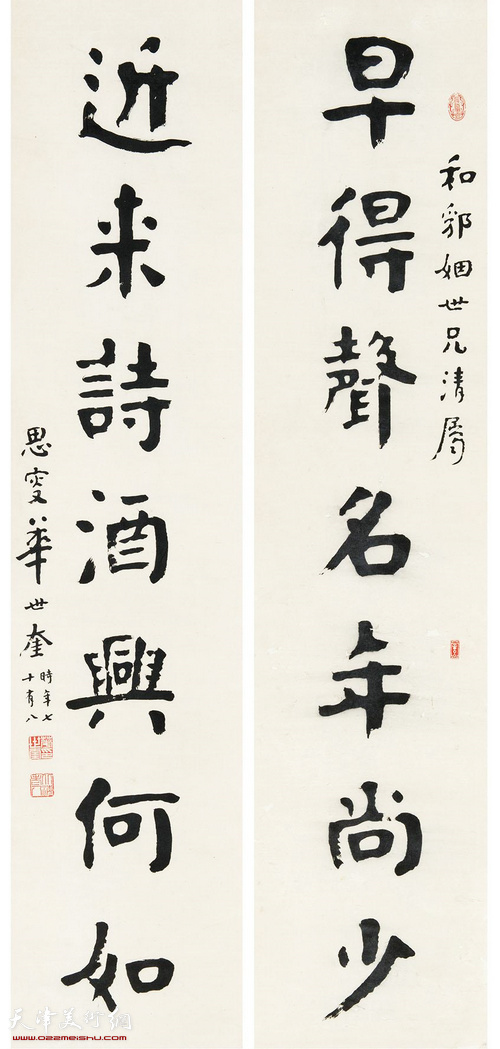 和鄒姻世兄清屬
早得聲名年尚少
近来詩酒興何如
思叟華世奎
時年七
十有八
天津美術網
www.022meishu.com